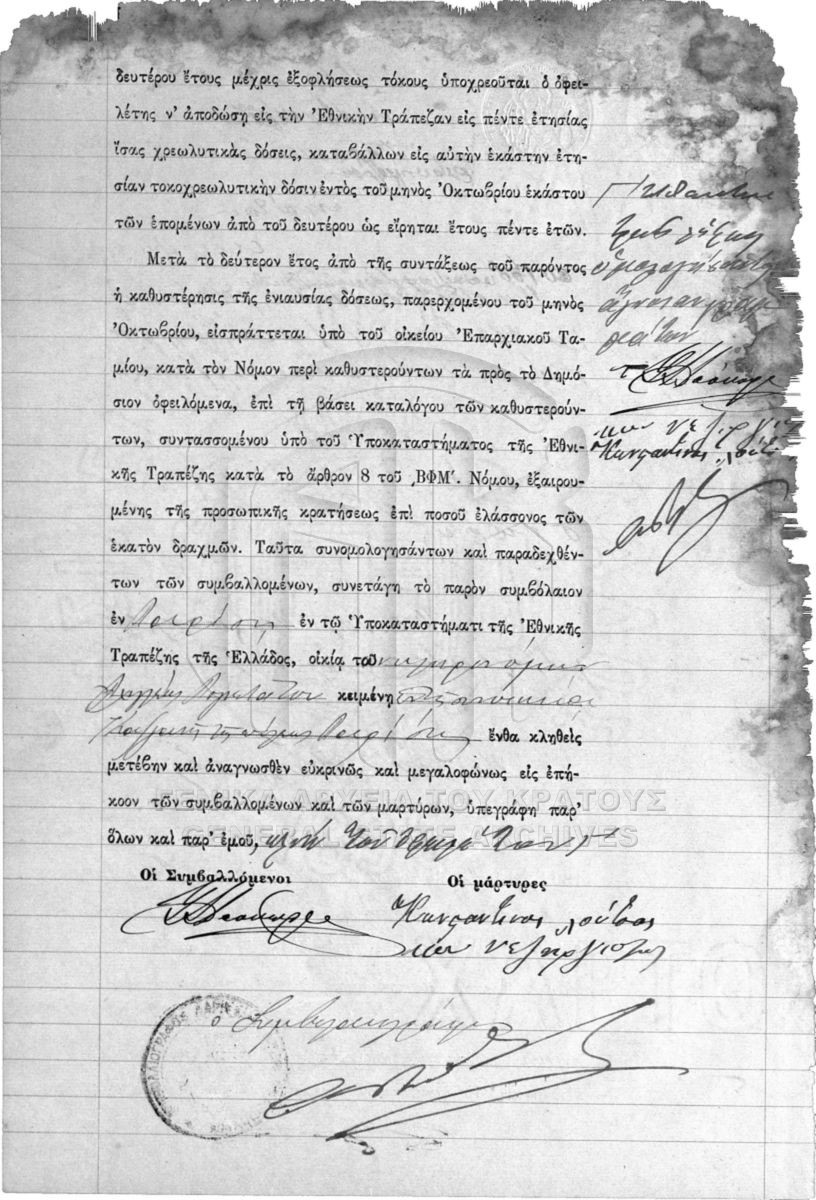 δευτέρου ἔτους μέχρις ἐξοφλήσεως τόκους ὑποχρεοῦται ὁ ὀφει-
λέτης ν' ἀποδώσῃ εἰς τὴν Ἐθνικὴν Τράπεζαν εἰς πέντε ἐτησίας
ἴσας χρεωλυτικὰς δόσεις, καταβάλλων εἰς αὐτὴν ἑκάστην ἐτη-
σίαν τοκοχρεωλυτικὴν δόσιν ἐντὸς τοῦ μηνὸς Ὀκτωβρίου ἑκάστου
τῶν ἑπομένων ἀπὸ τοῦ δευτέρου ὡς εἴρηται ἔτους πέντε ἐτῶν.
Μετὰ τὸ δεύτερον ἔτος ἀπὸ τῆς συντάξεως τοῦ παρόντος
ἡ καθυστέρησις τῆς ἐνιαυσίας δόσεως, παρερχομένου τοῦ μηνὸς
Ὀκτωβρίου, εἰσπράττεται ὑπὸ τοῦ οἰκείου Ἐπαρχιακοῦ Τα-
μίου, κατὰ τὸν Νόμον περὶ καθυστερούντων τὰ πρὸς τὸ Δημό-
σιον ὀφειλόμενα, ἐπὶ τῇ βάσει καταλόγου τῶν καθυστερούν-
των, συντασσομένου ὑπὸ τοῦ Ὑποκαταστήματος τῆς Ἐθνι-
κῆς Τραπέζης κατὰ τὸ ἄρθρον 8 τοῦ ͵ΒΦΜ'. Νόμου, ἐξαιρου-
μένης τῆς προσωπικῆς κρατήσεως ἐπὶ ποσοῦ ἐλάσσονος τῶν
ἑκατὸν δραχμῶν. Ταῦτα συνομολογησάντων καὶ παραδεχθέν-
των τῶν συμβαλλομένων, συνετάγη τὸ παρὸν συμβόλαιον
ἐν Λαρίσῃ ἐν τῷ Ὑποκαταστήματι τῆς Ἐθνικῆς
Τραπέζης τῆς Ἑλλάδος, οἰκίᾳ τοῦ κληρονόμων
κειμένῃ
Λαρίσης ἔνθα κληθεὶς
μετέβην καὶ ἀναγνωσθὲν εὐκρινῶς καὶ μεγαλοφώνως εἰς ἐπή-
κοον τῶν συμβαλλομένων καὶ τῶν μαρτύρων, ὑπεγράφη παρ'
ὅλων καὶ παρ' ἐμοῦ, πλὴν τοῦ
Οἱ Συμβαλλόμενοι
Οἱ μάρτυρες
Κωνσταντῖνος
ὁ Συμβολαιογράφος
ὁμολογήσαντος
ἄγνοιαν γραμ-
μάτων
Κωνσταντῖνος
ΓΕΝΙΚΑ ΑΡΧΕΙΑ ΤΟΥ ΚΡΑΤΟΥΣ
GENERAL STATE ARCHIVES